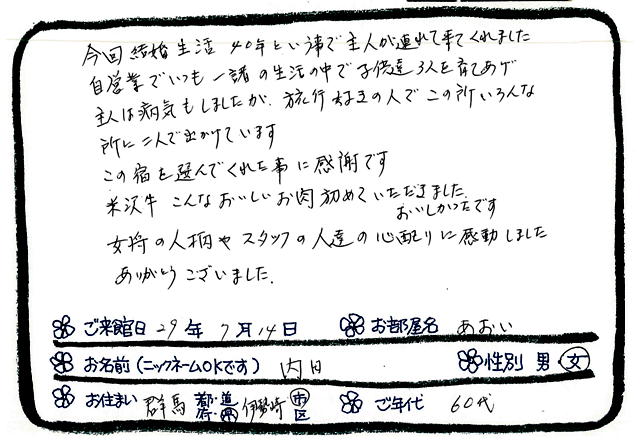 今回 結婚生活 40年という事で主人が連れて来てくれました
自営業でいつも一諸の生活の中で子供達3人を育てあげ
主人は病気もしましたが、旅行好きの人でこの所いろんな
所に二人で出かけています
この宿を選んでくれた事に感謝です
米沢牛 こんなおいしいお肉初めていただきました。
おいしかったです
女将の人柄やスタッフの人達の心配りに感動しました
ありがとうございました。
ご来館日 29年 7月14日 お部屋名 あおい
お名前(ニックネームOKです) 内田 性別 男 女
お住まい 群馬 都・道・府・県 伊勢崎 市 区 ご年代 60代